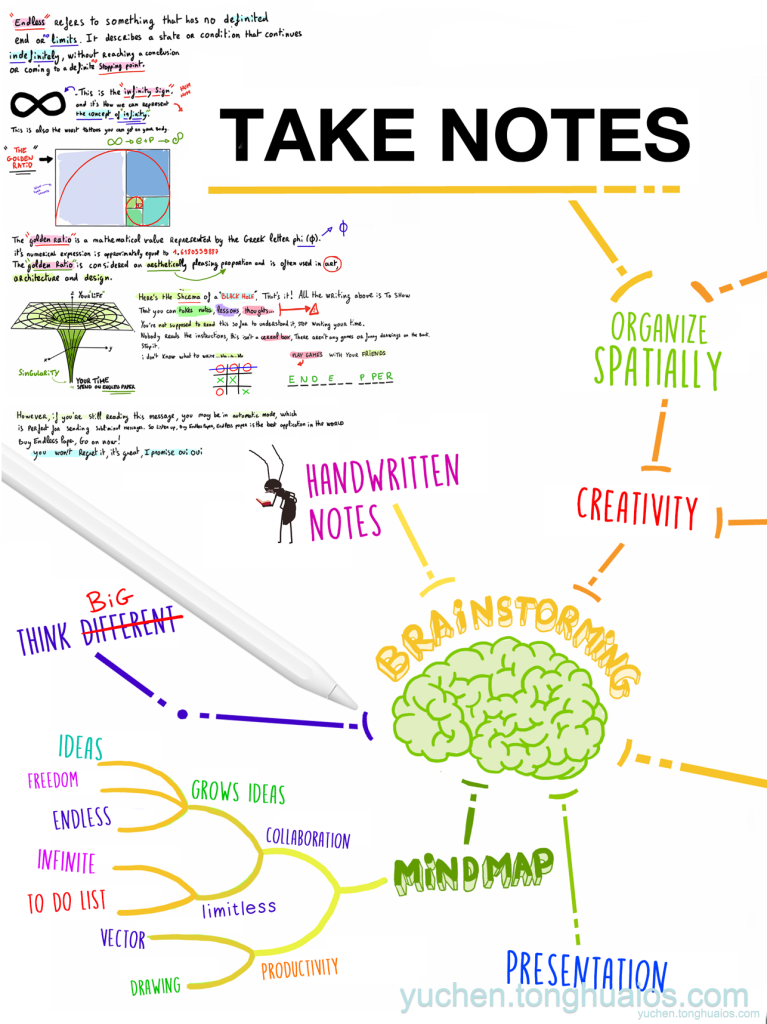 "Endless" refers to something that has no definited
end or limits. It describes a state or condition that continues
indefinitely, without reaching a conclusion
or coming to a definite stopping point.
. This is the "infinity sign".
and it's how we can represent
the concept of infinity."
This is also the worst tattoos you can get on your body.
"THE
GOLDEN
RATIO"
TAKE NOTES
The "golden ratio" is a mathematical value represented by the Greek letter phi (ϕ).
ϕ
it's numerical expression is approximately equal to 1.6180339887
The "golden Ratio" is considered an aesthetically pleasing proportion and is often used in art,
architecture and design.
YOUR LIFE
SINGULARITY
YOUR TIME
SPEND ON ENDLESS PAPER
Here's the Skcema of a "BLACK HOLE". That's it! All the writing above is To show
That you can takes notes, lessons, thoughts...
You're not supposed to read this so far to understand it, stop wasting your time.
Nobody reads the instructions, this isn't a cereal box, There aren't any games or funny drawings on the back.
Stop it.
i don't know what to write
PLAY GAMES WITH YOUR FRIENDS
E N D E _ _ P PER
However, if you're still Reading this message, you may be in automatic mode, which
is perfect for sending subliminal messages. So listen up, Buy Endless Paper, Endless paper is the best application in the WORLD
Buy Endless Paper, Go on now!
you won't Regret it, it's great, I promise oui oui
ORGANIZE
SPATIALLY
HANDWRITTEN
NOTES
CREATIVITY
BRAINSTORMING
BIG
THINK DIFFERENT
IDEAS
FREEDOM
ENDLESS
GROWS IDEAS
COLLABORATION
INFINITE
TO DO LIST
limitless
VECTOR
DRAWING
PRODUCTIVITY
MINDMAP
PRESENTATION
yuchen.tonghuaios.com
yuchen.tonghuaios.com